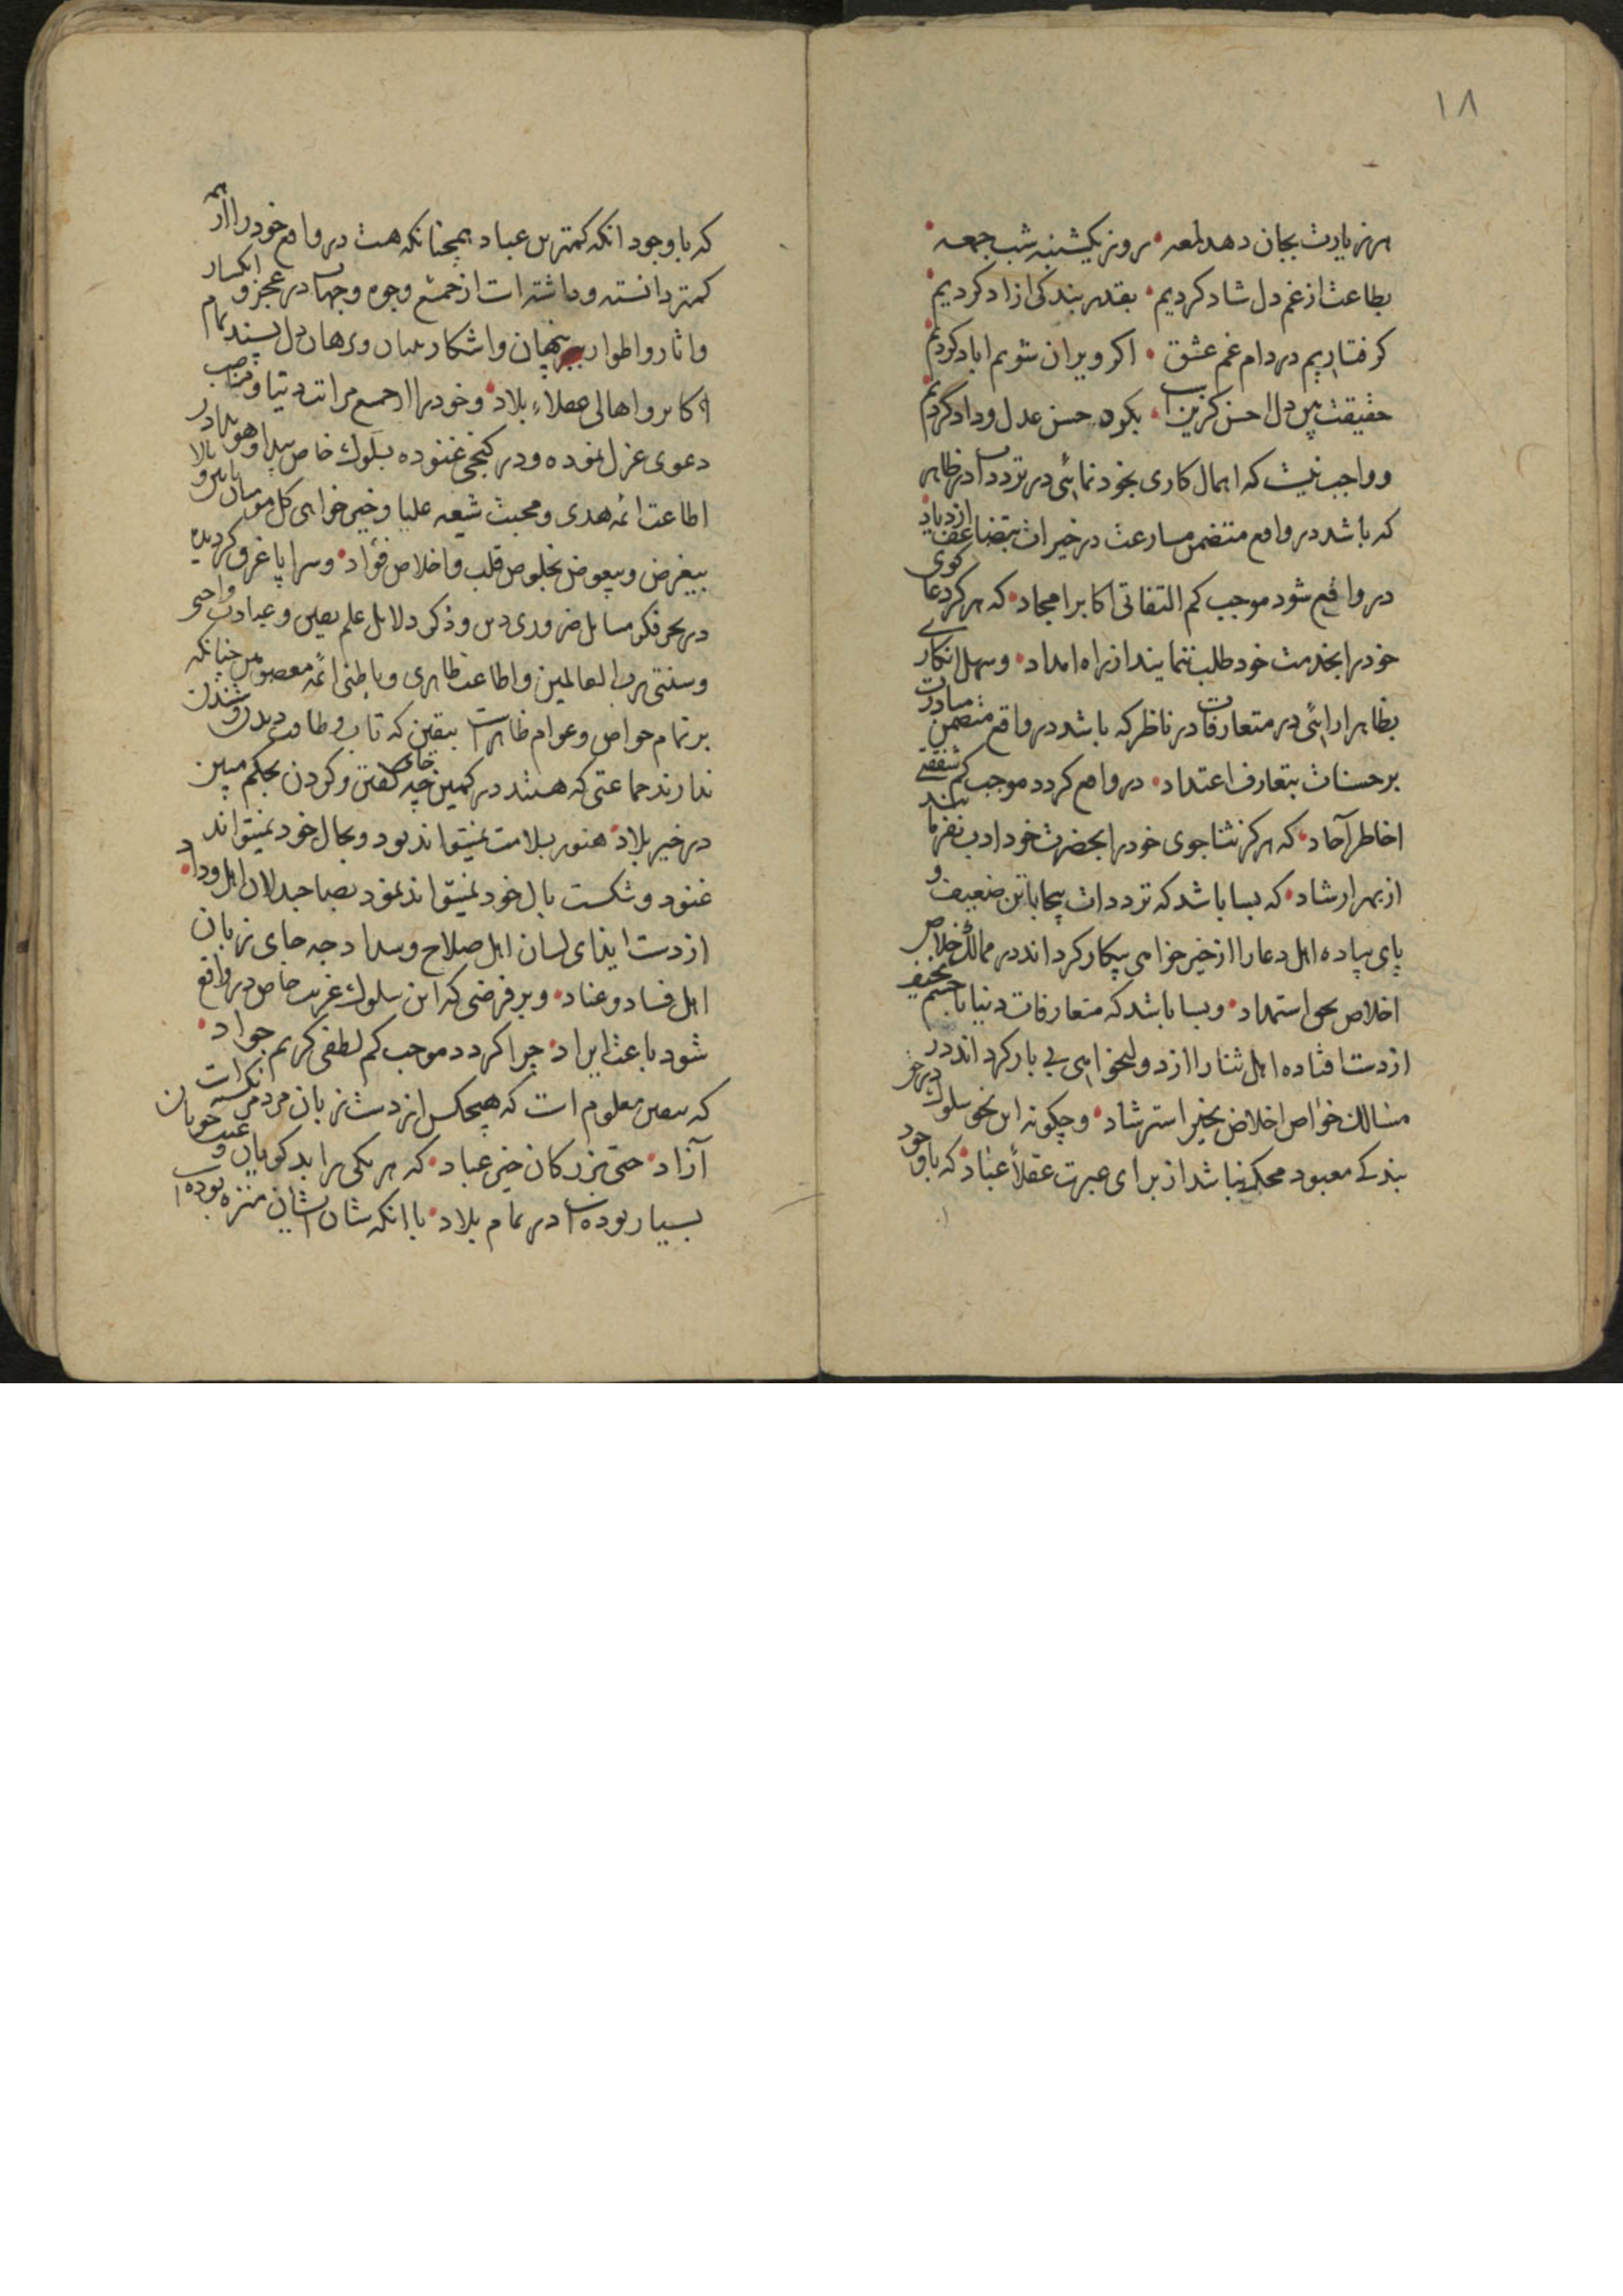 ۱۸
هر زیارت بجان دهد لمعه • روز یکشنبه شب جمعه •
بطاعت از غم دل شاد کردیم • بقدر بندکی ازاد کردیم •
کرفتاریم در دام غم عشق • اکر ویران شویم اباد کردیم
حقیقت بین دل احسن کزین • بکون حسن عدل و داد کردیم
و واجب نیست که اهمال کاری بخود نمائی در ترددات در ظاهر
که باشد در واقع متضمن مسارعت در خیرات بتضاعف ازدیاد
در واقع شود موجب کم التفاتی اکابر امجاد • که هر کز دعا کوی
خود را بخدمت خود طلب ننمایند از راه امداد • و سهل انکاری
بظاهر ارائی در متعارفات در ناظر که باشد در واقع متضمن مبادرت
بر حسنات بتعارف اعتداد • در واقع کردد موجب کم شفقتی
اخاطر آحاد • که هرکز ثناجوی خود را بحضرت خود ادب نفرمایند
از بهر ارشاد • که بسا باشد که ترددات بیجا با تن ضعیف و
پای پیاده اهل دعا را از خیر خواهی بیکار کرداند در ممالک خلاص
اخلاص بحق استمداد • و بسا باشد که متعارفات دنیا با جسم نحیف
از دست افتاده اهل ثنا را از دولتخواهی بی بار کرداند در
مسالک خواص اخلاص بخیر استرشاد • و چکونه این نحو سلوک در خیر
بندکی معبود محکم نباشد از برای عبرت عقلاء عباد • که باوجود
که با وجود انکه کمترین عباد همچنانکه هست در واقع خود را از همه
کمتر دانسته و داشته است از جمیع وجوه و جهات در عجز و انکسار
و اثار و اطوار پنهان و اشکار بلسان و برهان دل پسند تمام
اکابر و اهالی عقلاء بلاد • و خود را از جمیع مراتب دنیا و مناصب
دعوی عزل نموده و در کنجی غنوده بسلوک خاص پیدا و هویدا در
اطاعت ائمه هدی و محبت شیعه علیا و خیر خواهی کل مومنان پایین و بالا
بیغرض و بیعوض بخلوص قلب و اخلاص فؤاد • و سراپا غرق کردیده
در بحر فکر مسایل ضروری دین و ذکر دلایل علم یقین و عبادت واجبی
و سنتی رب العالمین و اطاعت ظاهری و باطنی ائمه معصومین چنانکه
بر تمام خواص و عوام ظاهرست بیقین که تاب و طاقت دیدن و شنیدن
ندارند جماعتی که هستند در کمین چه جای گفتن و کردن بحکم مبین
در خیر بلاد • هنوز بسلامت نمیتواند بود و بحال خود نمیتواند
غنود و شکست بال خود نمیتواند نمود بصاحبدلان اهل وداد •
از دست ایذای لسان اهل صلاح و سداد چه جای زبان
اهل فساد و عناد • و بر فرضی که این سلوک غریب خاص در واقع
شود باعث ایراد • چرا کردد موجب کم لطفی کریم جواد •
که بیقین معلوم است که هیچکس از دست زبان مردم نرسته است
آزاد • حتی بزرکان خیر عباد • که هر یکی را بد کویان و عیب جویان
بسیار بوده است در تمام بلاد • با انکه شان ایشان منزه بوده است